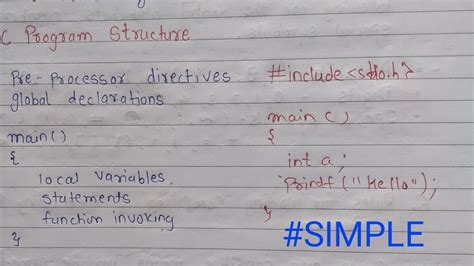 C Program Structure
Pre-Processor directives
global declarations
main()
{
local variables.
statements
function invoking
}
#include<stdio.h>
main()
{
int a;
Printf("Hello");
}
#SIMPLE